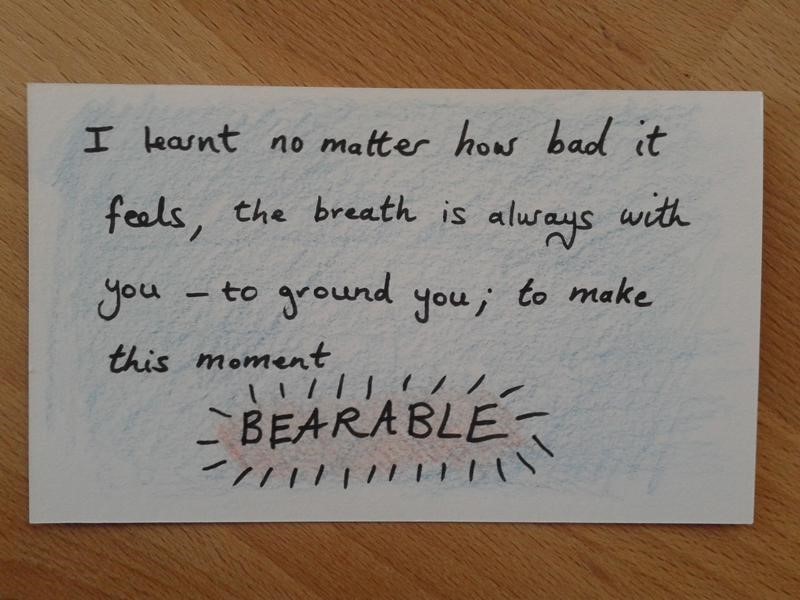 I learnt no matter how bad it
feels, the breath is always with
you – to ground you; to make
this moment
BEARABLE